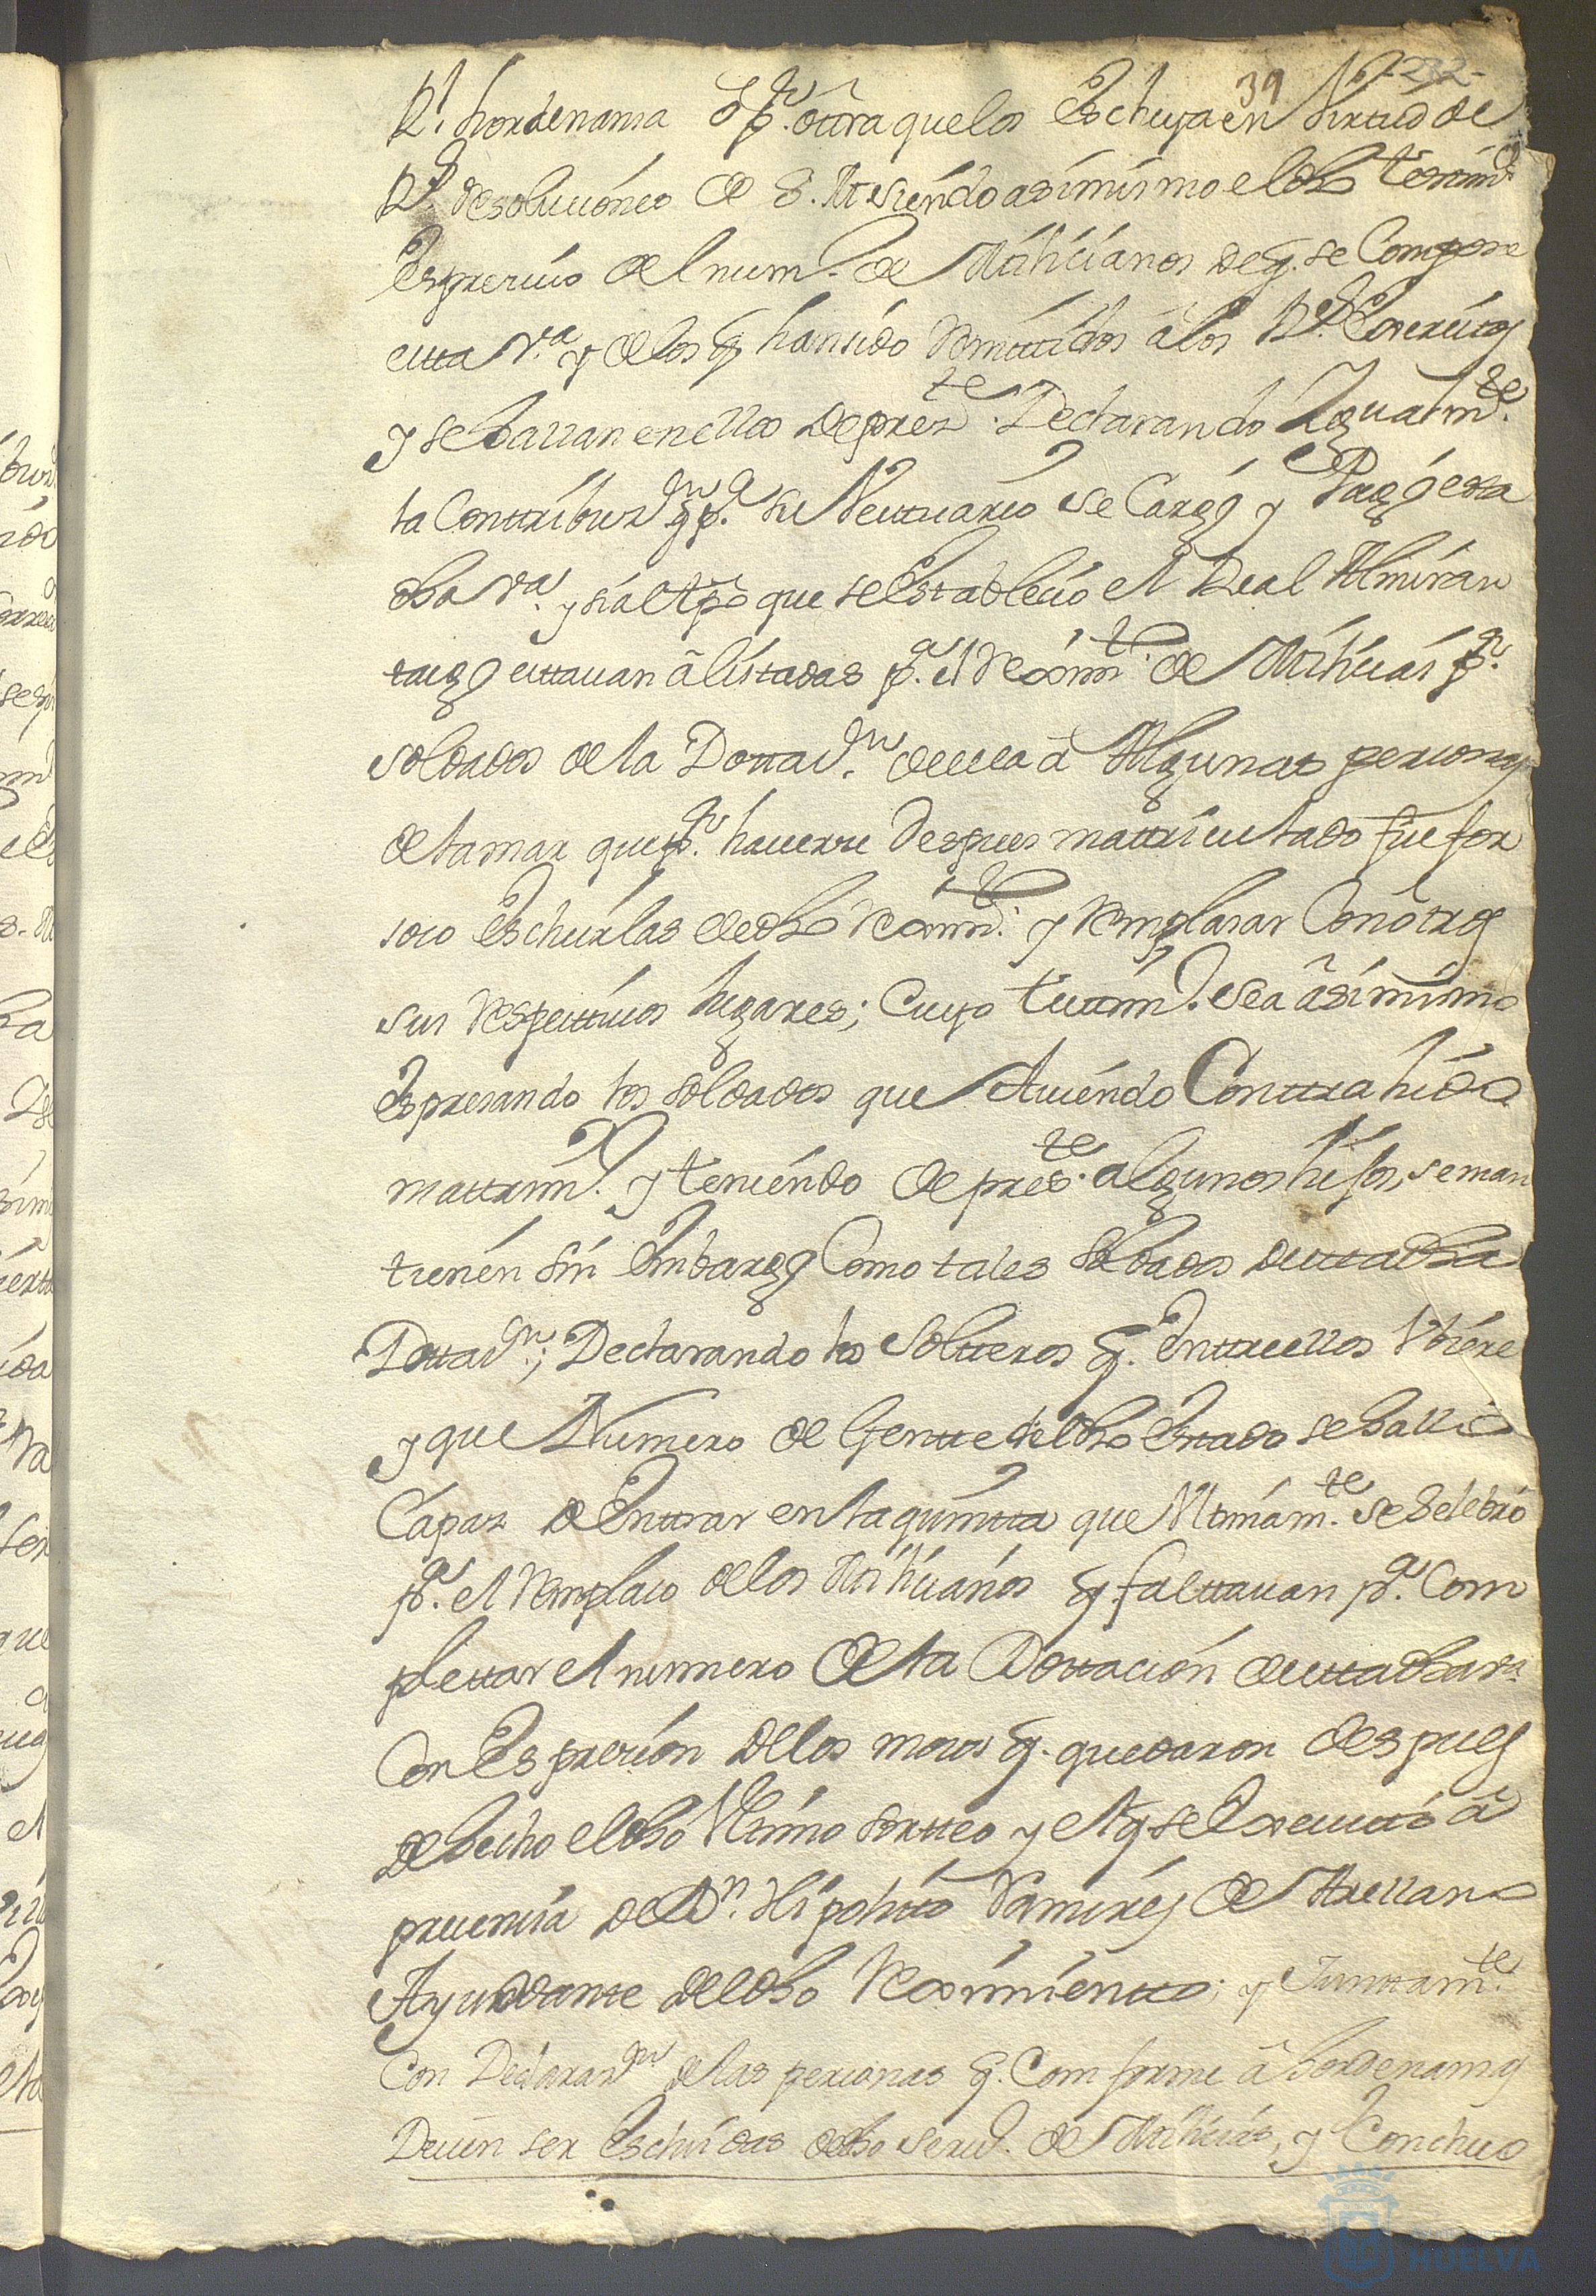 39 -232-
Rl. hordenansa o pr. otra que los Eschuya en Virtud de
Rs. Resoluciones de S. M siendo asimismo el dho testim.o
Espresivo del num.o de Milicianos de q. se Compone
esta V.a y de los q han sido Remitidos â los Rs. Exercitos
y se hallan en ellos de presz.te Declarando Igualm.te
la Contribuz.on q p.a su Vestuario se Cargo y Pago esta
dha V.a y si al tpo que se Estableció el Real Almiran
tazgo estavan âlistadas p.a el Rexim.to de Milicias p.r
soldados de la Dottaz.on de ella â Algunas personas
de la mar que p.r haverse despues mattriculado fue for
soso Eschuirlas de dho Rexim.to y Remplasar Con ôtros
sus Respectivos lugares; Cuyo testim.o sea âsimismo
Espresando los soldados que Aviendo Conttrahido
mattrim.o y teniendo de pres.te algunos hijos, se man
tienen sin Embargo Como tales Soldados de esta dha
Dottaz.on; Declarando los Soltteros q. Entre ellos Vbiere
y que Numero de Gentte del dho Estado se halle
Capaz de Enttrar en la quintta que Vltimam.te se Selebro
p.a el Remplaso de los Milicianos q. falttavan p.a Com
plettar el numero de la Dottacion de esta dha V.a
Con Espresion de los mosos q. quedaron despues
de hecho el dho Vltimo Sortteo y el q se Executtó â
presencia de Dn. Hipolitto Ramires de Arellano
Ayudante del dho Reximientto; y Junttam.te
Con Declaraz.on de las personas q. Comforme â hordenansas
Deven ser Eschuidas de dho serv.o de Milicias, y Concluso
HUELVA